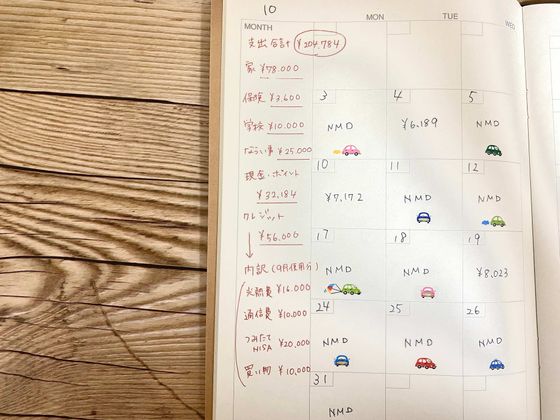 10
MONTH
MON
TUE
WED
支出合計 ¥204,784
家 ¥78.000
保険 ¥3,600
学校 ¥10.000
ならい事 ¥25.000
現金・ポイント
¥32,184
クレジット
¥56,000
内訳(9月使用分)
光熱費 ¥16.000
通信費 ¥10,000
つみたて
NISA ¥20,000
買い物 ¥10,000
3 4 5
NMD ¥6.189 NMD
10 11 12
¥7,172 NMD NMD
17 18 19
NMD NMD ¥8,023
24 25 26
NMD NMD NMD
31
NMD